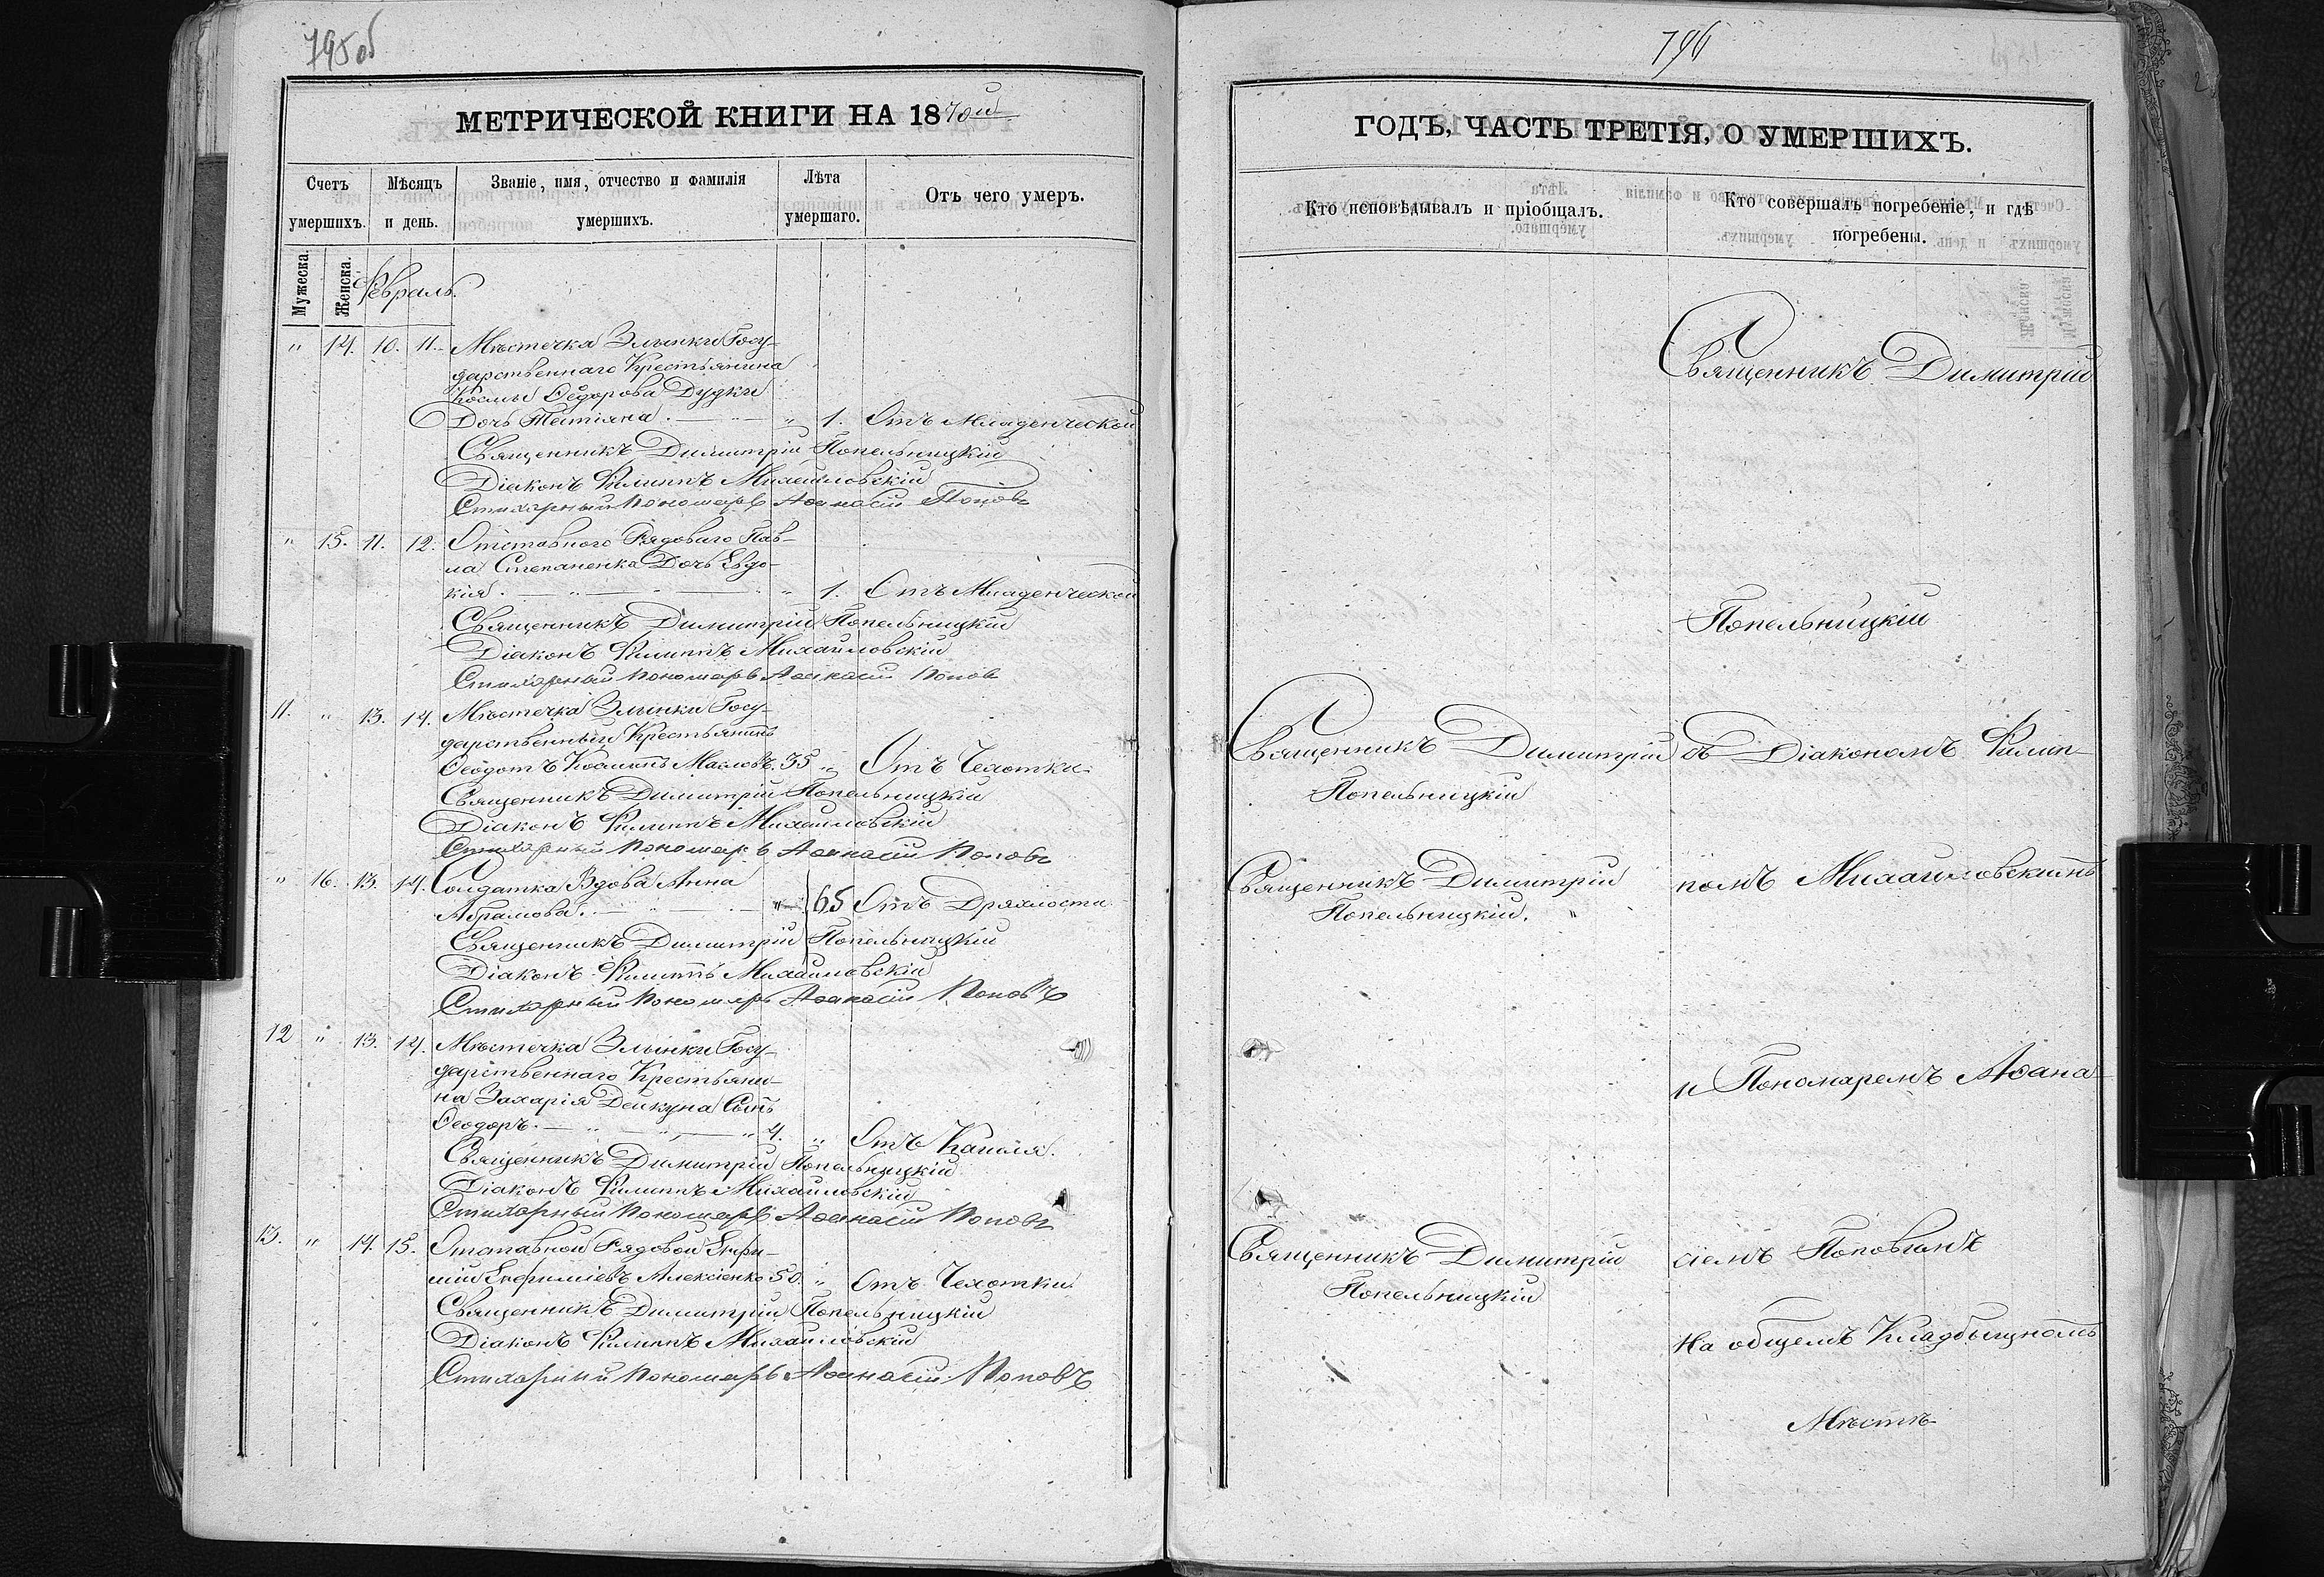 795об
МЕТРИЧЕСКОЙ КНИГИ НА 1870й
Счетъ умершихъ.
Мѣсяцъ и день.
Званіе, имя, отчество и фамилія умершихъ.
Лѣта умершаго.
Отъ чего умеръ.
Мужеска.
Женска.
Февраль.
" 14. 10. 11. Мѣстечка Злынки Госу-
дарственнаго Крестьянина
Космы Ѳеодорова Дудки
Дочь Татіяна. " 1. Отъ Младенческой
Священникъ Димитрій Попельницкій
Діаконъ Филиппъ Михайловскій
Стихарный Пономарь Аѳанасій Поповъ
" 15. 11. 12. Отставного Рядоваго Пав-
ла Степаненка Дочь Евдо-
кія. " 1. Отъ Младенческой
Священникъ Димитрій Попельницкій
Діаконъ Филиппъ Михайловскій
Стихарный Пономарь Аѳанасій Поповъ
11. " 13. 14. Мѣстечка Злынки Госу-
дарственный Крестьянинъ
Ѳеодотъ Косминъ Масловъ. 35 " Отъ Чехотки.
Священникъ Димитрій Попельницкій
Діаконъ Филиппъ Михайловскій
Стихарный Пономарь Аѳанасій Поповъ
" 16. 13. 14. Солдатка Вдова Анна
Абрамова. " 65 Отъ Дряхлости
Священникъ Димитрій Попельницкій
Діаконъ Филиппъ Михайловскій
Стихарный Пономарь Аѳанасій Поповъ
12 " 13. 14. Мѣстечка Злынки Госу-
дарственнаго Крестьяни-
на Захарія Дейкуна Сынъ
Ѳеодоръ. 4. " Отъ Кашля.
Священникъ Димитрій Попельницкій
Діаконъ Филиппъ Михайловскій
Стихарный Пономарь Аѳанасій Поповъ
13. " 14. 15. Отставной Рядовой Евфи-
мій Евфиміевъ Алексіенко 50. " Отъ Чехотки.
Священникъ Димитрій Попельницкій
Діаконъ Филиппъ Михайловскій
Стихарный Пономарь Аѳанасій Поповъ
796
ГОДЪ, ЧАСТЬ ТРЕТІЯ, О УМЕРШИХЪ.
Кто исповѣдывалъ и пріобщалъ.
Кто совершалъ погребеніе, и гдѣ
погребены.
Священникъ Димитрій
Попельницкій
Священникъ Димитрій
Попельницкій
съ Діакономъ Филип-
Священникъ Димитрій
Попельницкій.
помъ Михайловскимъ
и Пономаремъ Аѳана-
Священникъ Димитрій
Попельницкій
сіемъ Поповымъ
На общемъ Кладбищномъ
Мѣстѣ